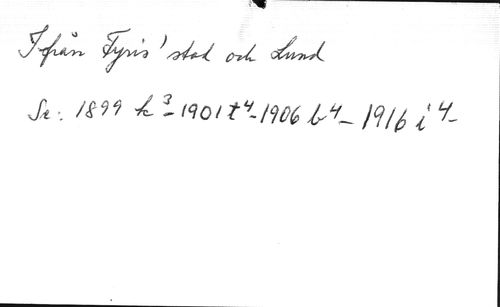 Ifrån Fyris' stad och Lund
Se: 1899 k³ - 1901 t⁴ - 1906 b⁴ - 1916 i⁴ -